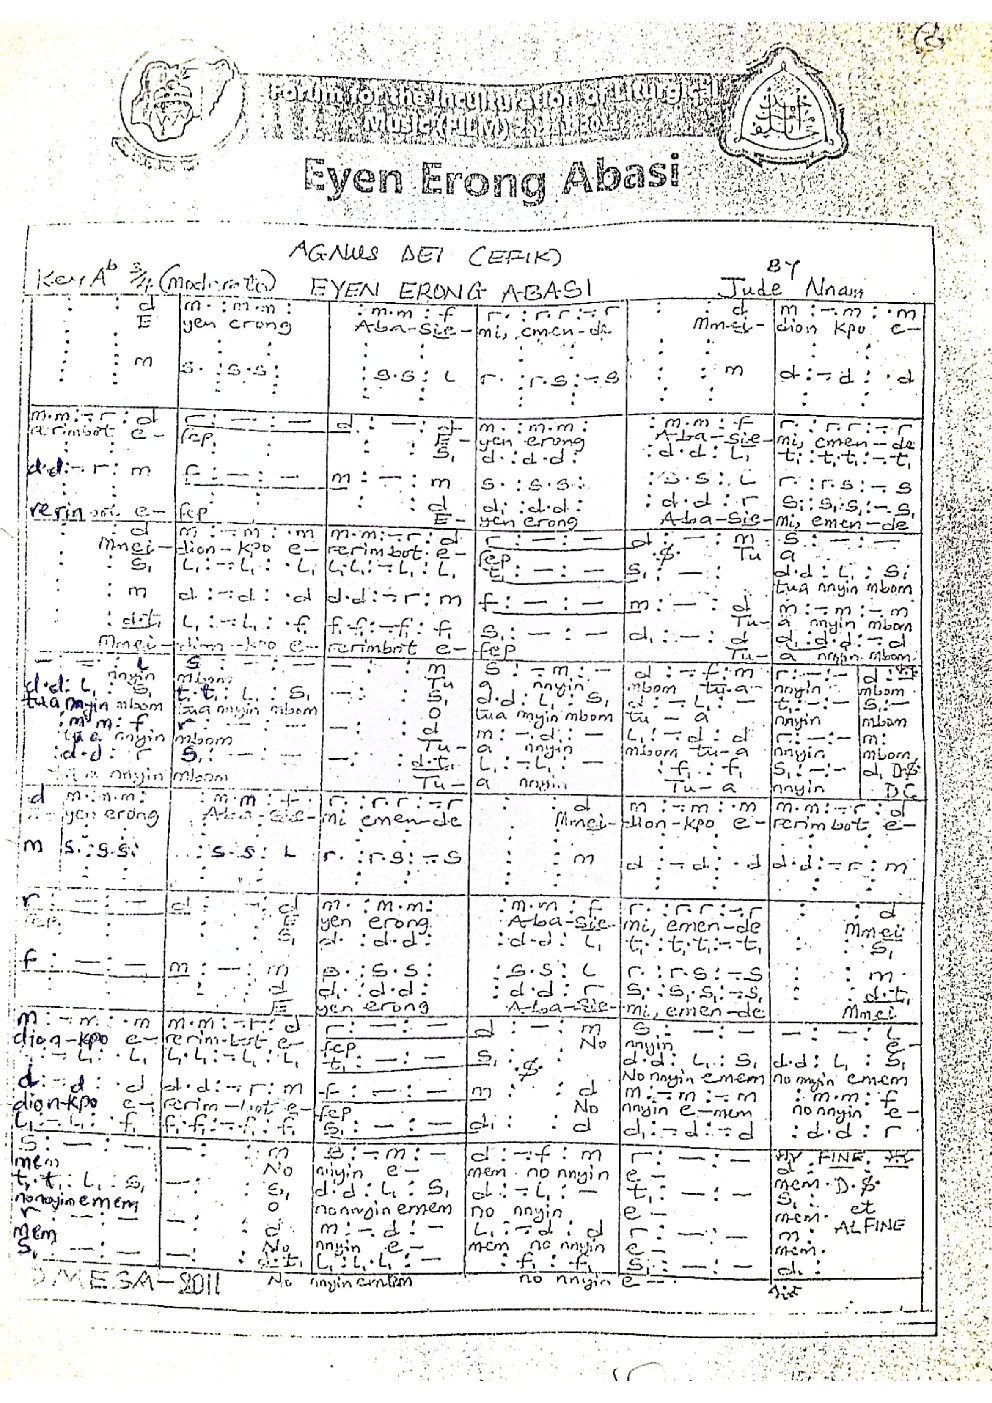 Forum for the Inculturation of Liturgical
Music (FILM)
Eyen Erong Abasi
AGNUS DEI (EFIK)
BY
Key Ab 3/4 (moderato) EYEN ERONG ABASI Jude Nnam
: : d | m . : m . m : | : m . m : f | r . : r . r : - . r | : : d | m : - . m : . m
E yen erong Aba-sie- mi, emen-de Mmei- dion kpo e-
: : m | s . : s . s : | : s . s : l | r . : r . s : - . s | : : m | d : - . d : . d
m . m : - . r : d | r : — : — | d : — : d | m . : m . m : | : m . m : f | r . : r . r : - . r
rerimbot e- fep, E- yen erong Aba-sie- mi, emen-de
S, | d . : d . d : | : d . d : L, | t, : t, . t, : - . t,
d . d : - . r : m | f : — : — | m : — : m | s . : s . s : | : s . s : L | r : r . s : - . s
: d | d, : d . d : | : d . d : r | S, : S, . S, : - . S,
rerimbot e- fep E- yen erong Aba-sie- mi, emen-de
: d | m : - . m : . m | m . m : - . r : d | r : — : — | d : — : m | S : — : —
Mmei- dion-kpo e- rerimbot e- fep Tu a
: S, | L, : - . L, : . L, | L, . L, : - . L, : L, | t, : — : — | S, : — : | d . d : L, : S,
tua nnyin mbom
: m | d : - . d : . d | d . d : - . r : m | f : — : — | m : — : d | m : - . m : - . m
Tu- a nnyin mbom
: d . t, | L, : - . L, : . f, | f, . f, : - . f, : f, | S, : — : — | d, : — : d | d : d . d : - . d
Mmei- dion-kpo e- rerimbot e- fep Tu- a nnyin mbom
— : — : L | S : — : — | — : : m | S : - . m : - | d : - . f : m | r : — : — | d : —
nnyin mbom Tu a nnyin mbom tu-a nnyin mbom
d . d : L, : S, | t, . t, : L, : S, | — : : S, | d . d : L, : S, | d : - . L, : — | t, : — : — | S, : —
tua nnyin mbom tua nnyin mbom O tua nnyin mbom tu - a nnyin mbom
: m . m : f | r : — : — | — : : d | m : - . d : - | L, : - . d : d | r : — : — | m :
nnyin mbom Tu- a nnyin mbom tu-a nnyin mbom
: d . d : r | S, : — : — | — : : d . t, | L, : - . L, : - | : f, : f, | S, : — : — | d, D.S
tua nnyin mbom Tu- a nnyin Tu - a nnyin D.C
d | m . : m . m : | : m . m : f | r . : r . r : - . r | : : d | m : - . m : . m | m . m : - . r : d
yen erong Aba-sie- mi emen-de Mmei- dion-kpo e- rerimbot e-
m | s . : s . s : | : s . s : L | r . : r . s : - . s | : : m | d : - . d : . d | d . d : - . r : m
r : — : — | d : — : d | m . : m . m : | : m . m : f | r . : r . r : - . r | : : d
fep, E yen erong Aba-sie- mi, emen-de Mmei
S, | d . : d . d : | : d . d : L, | t, : t, . t, : - . t, | : : S,
f : — : — | m : — : m | s . : s . s : | : s . s : L | r : r . s : - . s | : : m
: d | d, : d . d : | : d . d : r | S, : S, . S, : - . S, | d . t,
E yen erong Aba-sie- mi, emen-de Mmei
m : - . m : . m | m . m : - . r : d | r : — : — | d : — : m | S : — : — | — : — : L
dion-kpo e- rerim-bot e- fep No nnyin e-
: - . L, : . L, | L, . L, : - . L, : L, | t, : — : — | S, : .S. | d . d : L, : S, | d . d : L, : S,
No nnyin emem no nnyin emem
d : - . d : . d | d . d : - . r : m | f : — : — | m : : d | m : - . m : - . m | : m . m : f
dion-kpo e- rerim-bot e- fep No nnyin e-mem no nnyin e-
L, : - . L, : f, | f, . f, : - . f, : f, | S, : — : — | d, : : d | d, : - . d : - . d | : d . d : r
S : — : — | — : : m | S : - . m : - | d : - . f : m | r : — : — | FINE
mem No nnyin e - mem no nnyin e - mem. D.S.
t, . t, : L, : S, | — : : S, | d . d : L, : S, | d : - . L, : — | t, : — : — | S, : et
no nnyin emem O no nnyin emem no nnyin e - mem. AL FINE
r : — : — | — : : d | m : - . d : - | L, : - . d : d | r : — : — | m :
mem No nnyin e - mem no nnyin e - mem.
S, : — : — | — : : d . t, | L, : L, . L, : - | : f, : f, | S, : — : — | d, :
DMESA-2011 No nnyin emem no nnyin e -